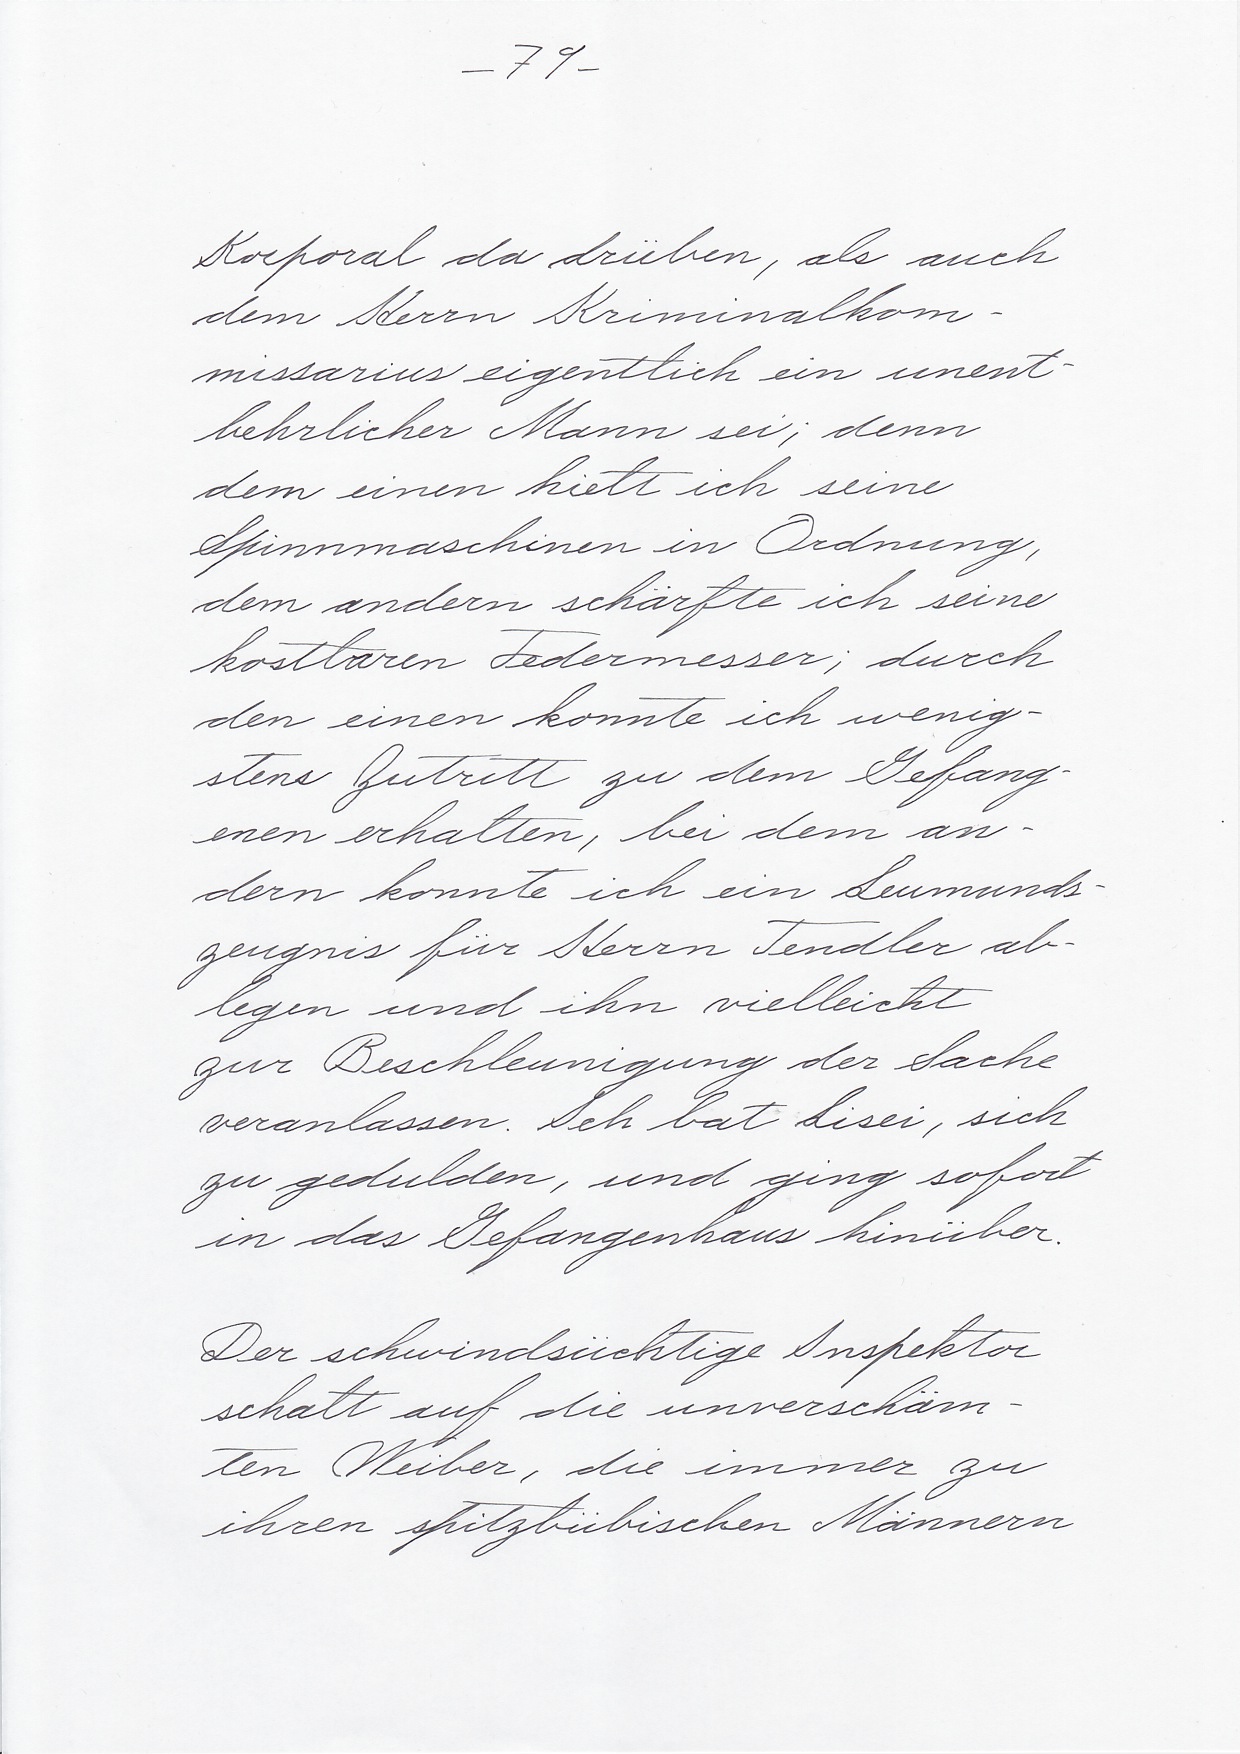 – 79 –
Korporal da drüben, als auch
dem Herrn Kriminalkom-
missarius eigentlich ein unent-
behrlicher Mann sei; denn
dem einen hielt ich seine
Spinnmaschinen in Ordnung,
dem andern schärfte ich seine
kostbaren Federmesser; durch
den einen konnte ich wenig-
stens Zutritt zu dem Gefang-
enen erhalten, bei dem an-
dern konnte ich ein Leumunds-
zeugnis für Herrn Tendler ab-
legen und ihn vielleicht
zur Beschleunigung der Sache
veranlassen. Ich bat Lisei, sich
zu gedulden, und ging sofort
in das Gefangenhaus hinüber.
Der schwindsüchtige Inspektor
schalt auf die unverschäm-
ten Weiber, die immer zu
ihren spitzbübischen Männern